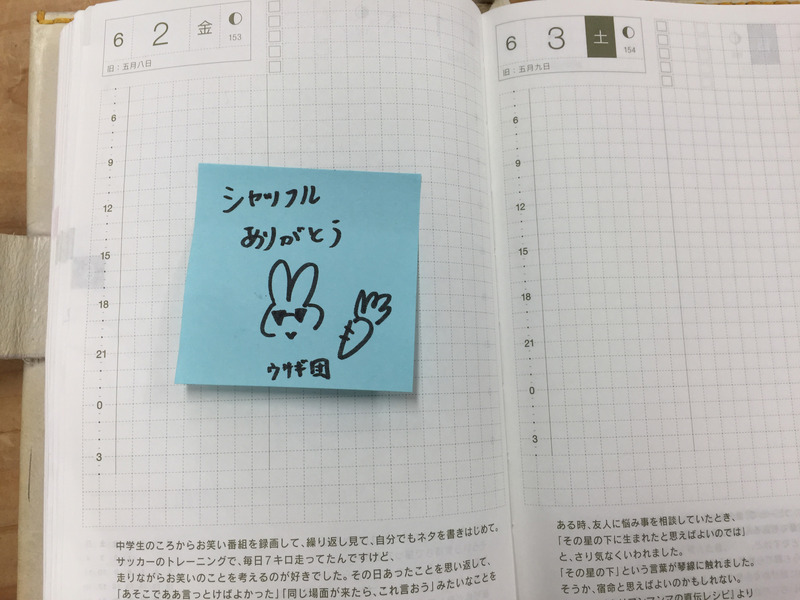 6 2 金
153
旧：五月八日
6
9
12
15
18
21
0
3
シャッフル
ありがとう
ウサギ団
中学生のころからお笑い番組を録画して、繰り返し見て、自分でもネタを書きはじめて。
サッカーのトレーニングで、毎日7キロ走ってたんですけど、
走りながらお笑いのことを考えるのが好きでした。その日あったことを思い返して、
「あそこでああ言っとけばよかった」「同じ場面が来たら、これ言おう」みたいなことを
6 3 土
154
旧：五月九日
6
9
12
15
18
21
0
3
ある時、友人に悩み事を相談していたとき、
「その星の下に生まれたと思えばよいのでは」
と、さり気なくいわれました。
「その星の下」という言葉が琴線に触れました。
そうか、宿命と思えばよいのかもしれない。
アンマンマの直伝レシピ」より